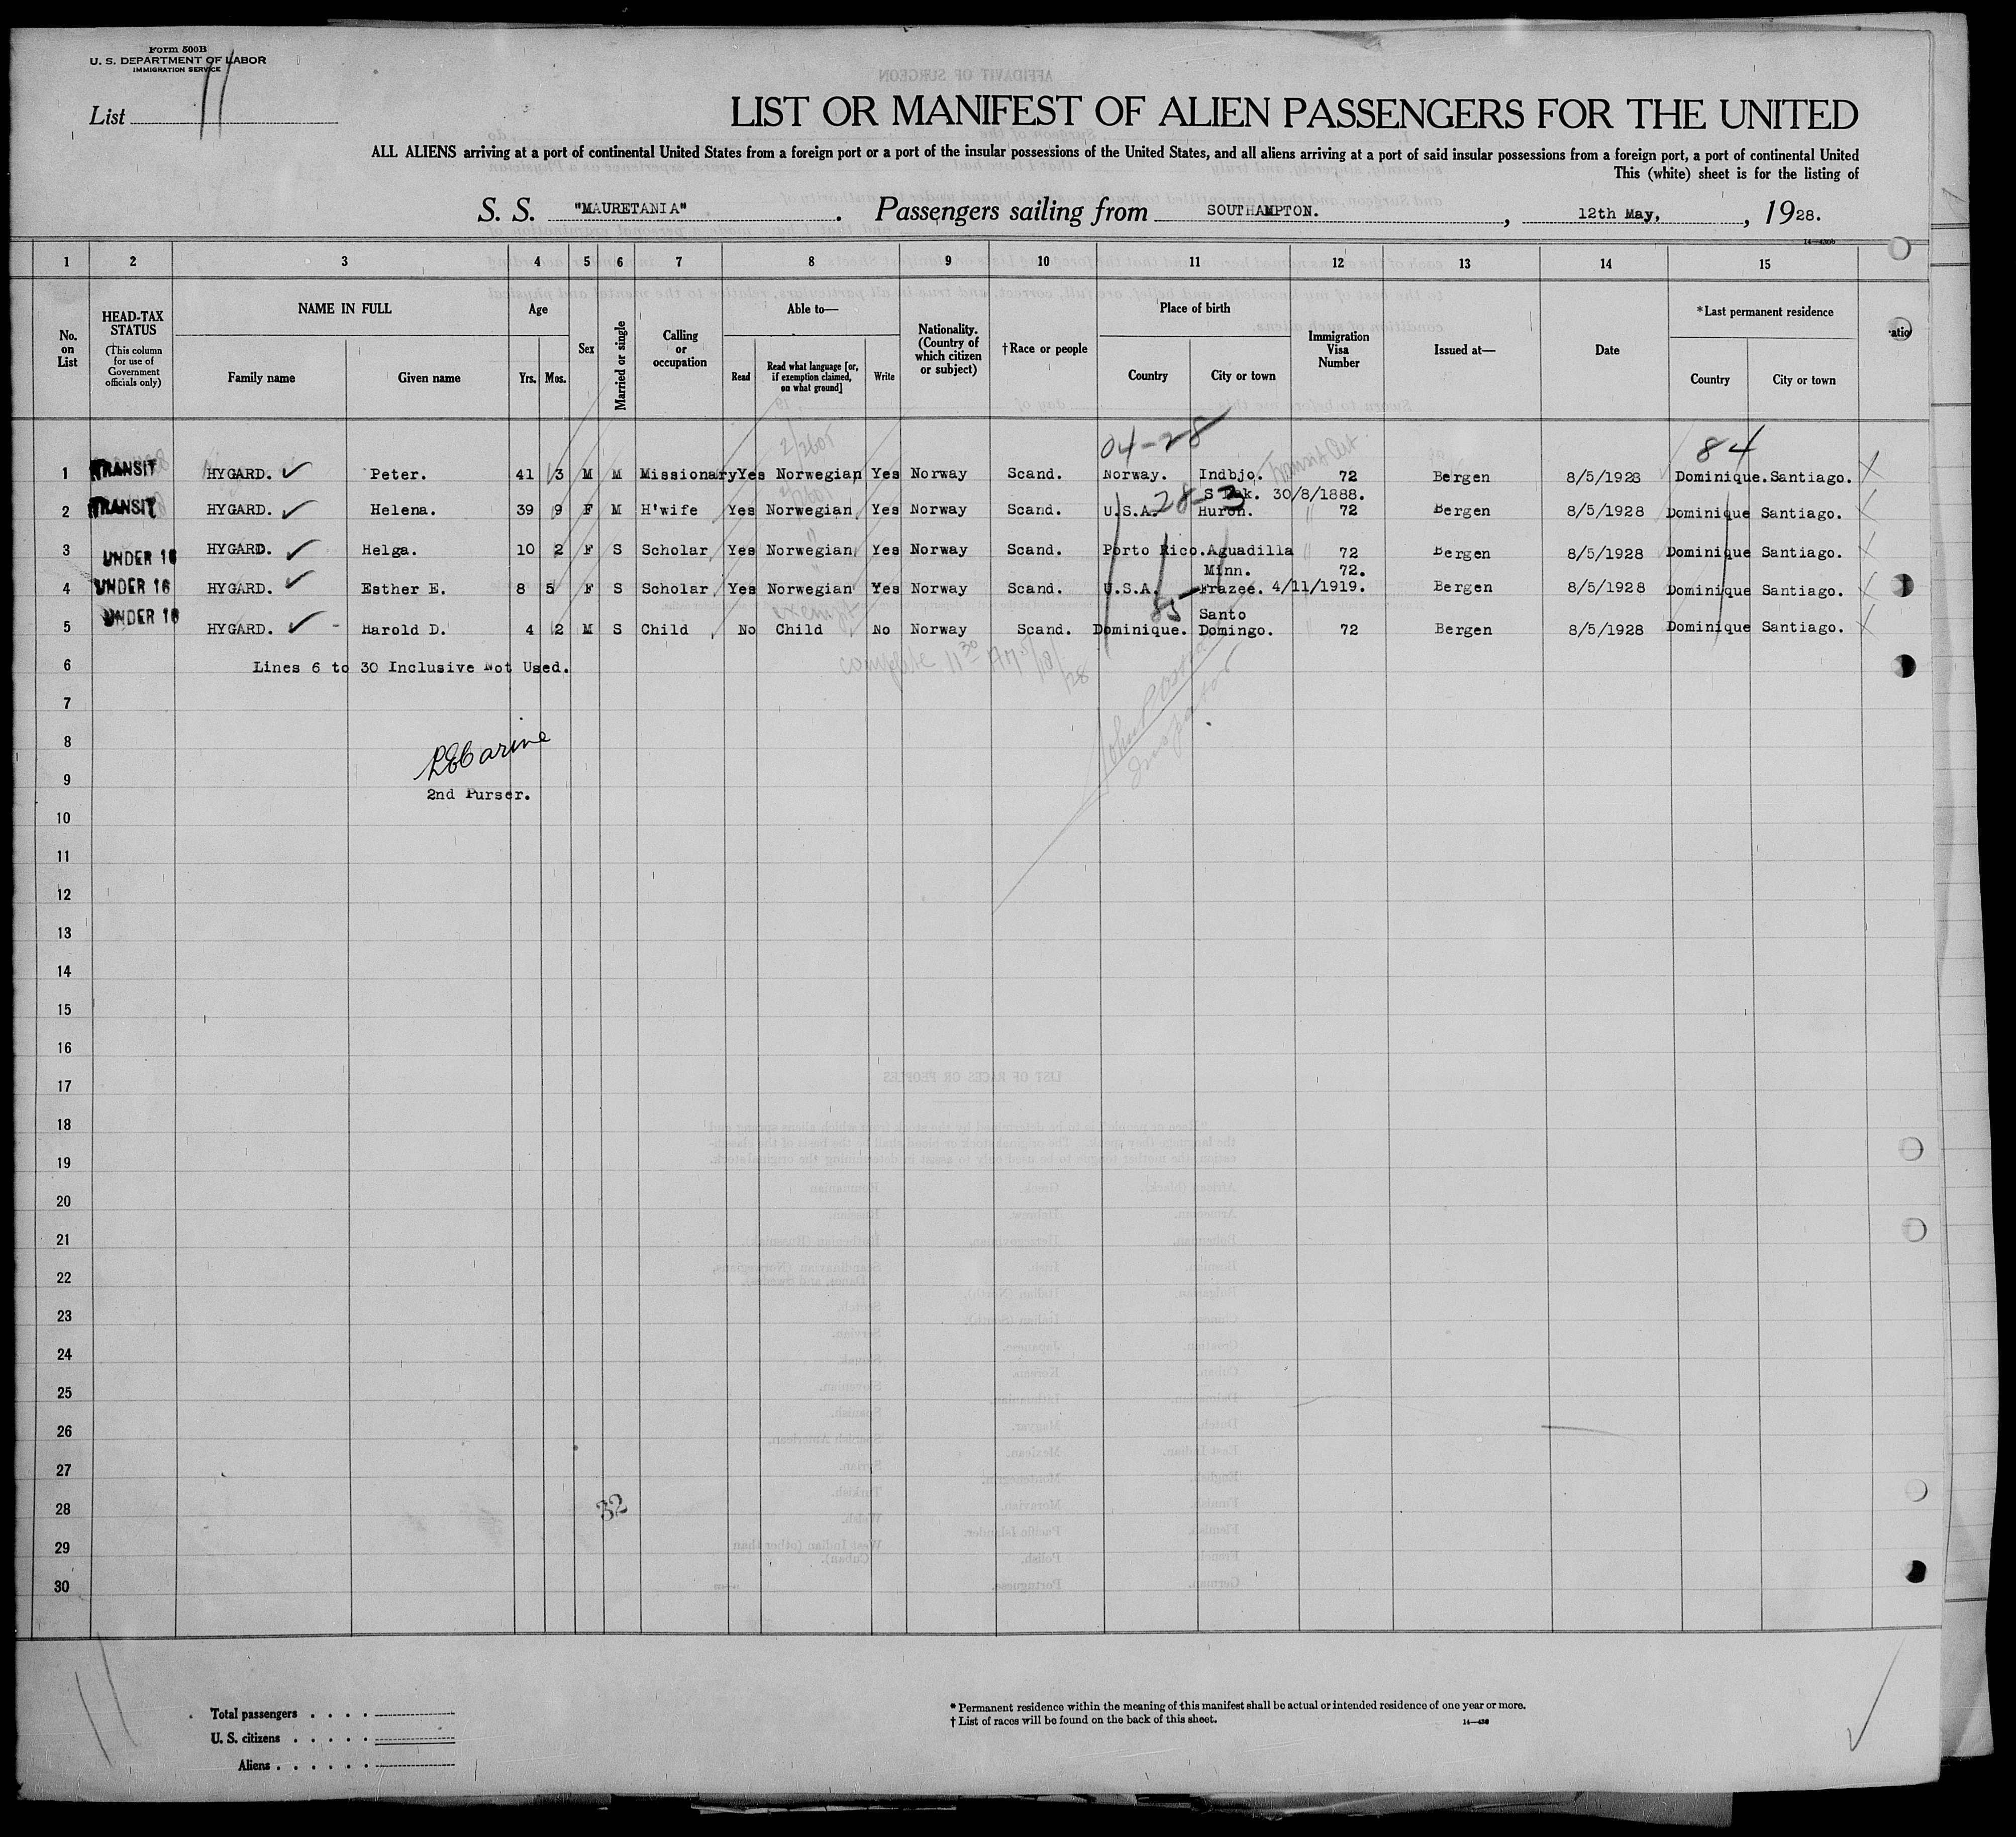 Form 500B
U. S. DEPARTMENT OF LABOR
IMMIGRATION SERVICE
List 11
LIST OR MANIFEST OF ALIEN PASSENGERS FOR THE UNITED
ALL ALIENS arriving at a port of continental United States from a foreign port or a port of the insular possessions of the United States, and all aliens arriving at a port of said insular possessions from a foreign port, a port of continental United
This (white) sheet is for the listing of
S. S. "MAURETANIA". Passengers sailing from SOUTHAMPTON., 12th May, , 1928.
1 2 3 4 5 6 7 8 9 10 11 12 13 14 15
No. on List
HEAD-TAX STATUS (This column for use of Government officials only)
NAME IN FULL
Family name Given name
Age
Yrs. Mos.
Sex
Married or single
Calling or occupation
Able to—
Read
Read what language [or, if exemption claimed, on what ground]
Write
Nationality. (Country of which citizen or subject)
†Race or people
Place of birth
Country City or town
Immigration Visa Number
Issued at—
Date
*Last permanent residence
Country City or town
04-28 84
1 TRANSIT HYGARD. Peter. 41 3 M M Missionary Yes Norwegian Yes Norway Scand. Norway. Indbjo. 72 Bergen 8/5/1928 Dominique. Santiago.
28-3 S Dak. 30/8/1888.
2 TRANSIT HYGARD. Helena. 39 9 F M H'wife Yes Norwegian Yes Norway Scand. U.S.A. Huron. 72 Bergen 8/5/1928 Dominique Santiago.
3 UNDER 16 HYGARD. Helga. 10 2 F S Scholar Yes Norwegian Yes Norway Scand. Porto Rico. Aguadilla 72 Bergen 8/5/1928 Dominique Santiago.
Minn. 72.
4 UNDER 16 HYGARD. Esther E. 8 5 F S Scholar Yes Norwegian Yes Norway Scand. U.S.A. Frazee. 4/11/1919. Bergen 8/5/1928 Dominique Santiago.
exempt 85 Santo
5 UNDER 16 HYGARD. Harold D. 4 2 M S Child No Child No Norway Scand. Dominique. Domingo. 72 Bergen 8/5/1928 Dominique Santiago.
6 Lines 6 to 30 Inclusive Not Used.
complete 11 30 AM 5/18/28
7
8
9
2nd Purser.
Inspector
10
11
12
13
14
15
16
17
18
19
20
21
22
23
24
25
26
27
28 32
29
30
Total passengers . . . .
U. S. citizens . . . . .
Aliens . . . . . .
* Permanent residence within the meaning of this manifest shall be actual or intended residence of one year or more.
† List of races will be found on the back of this sheet. 14—430